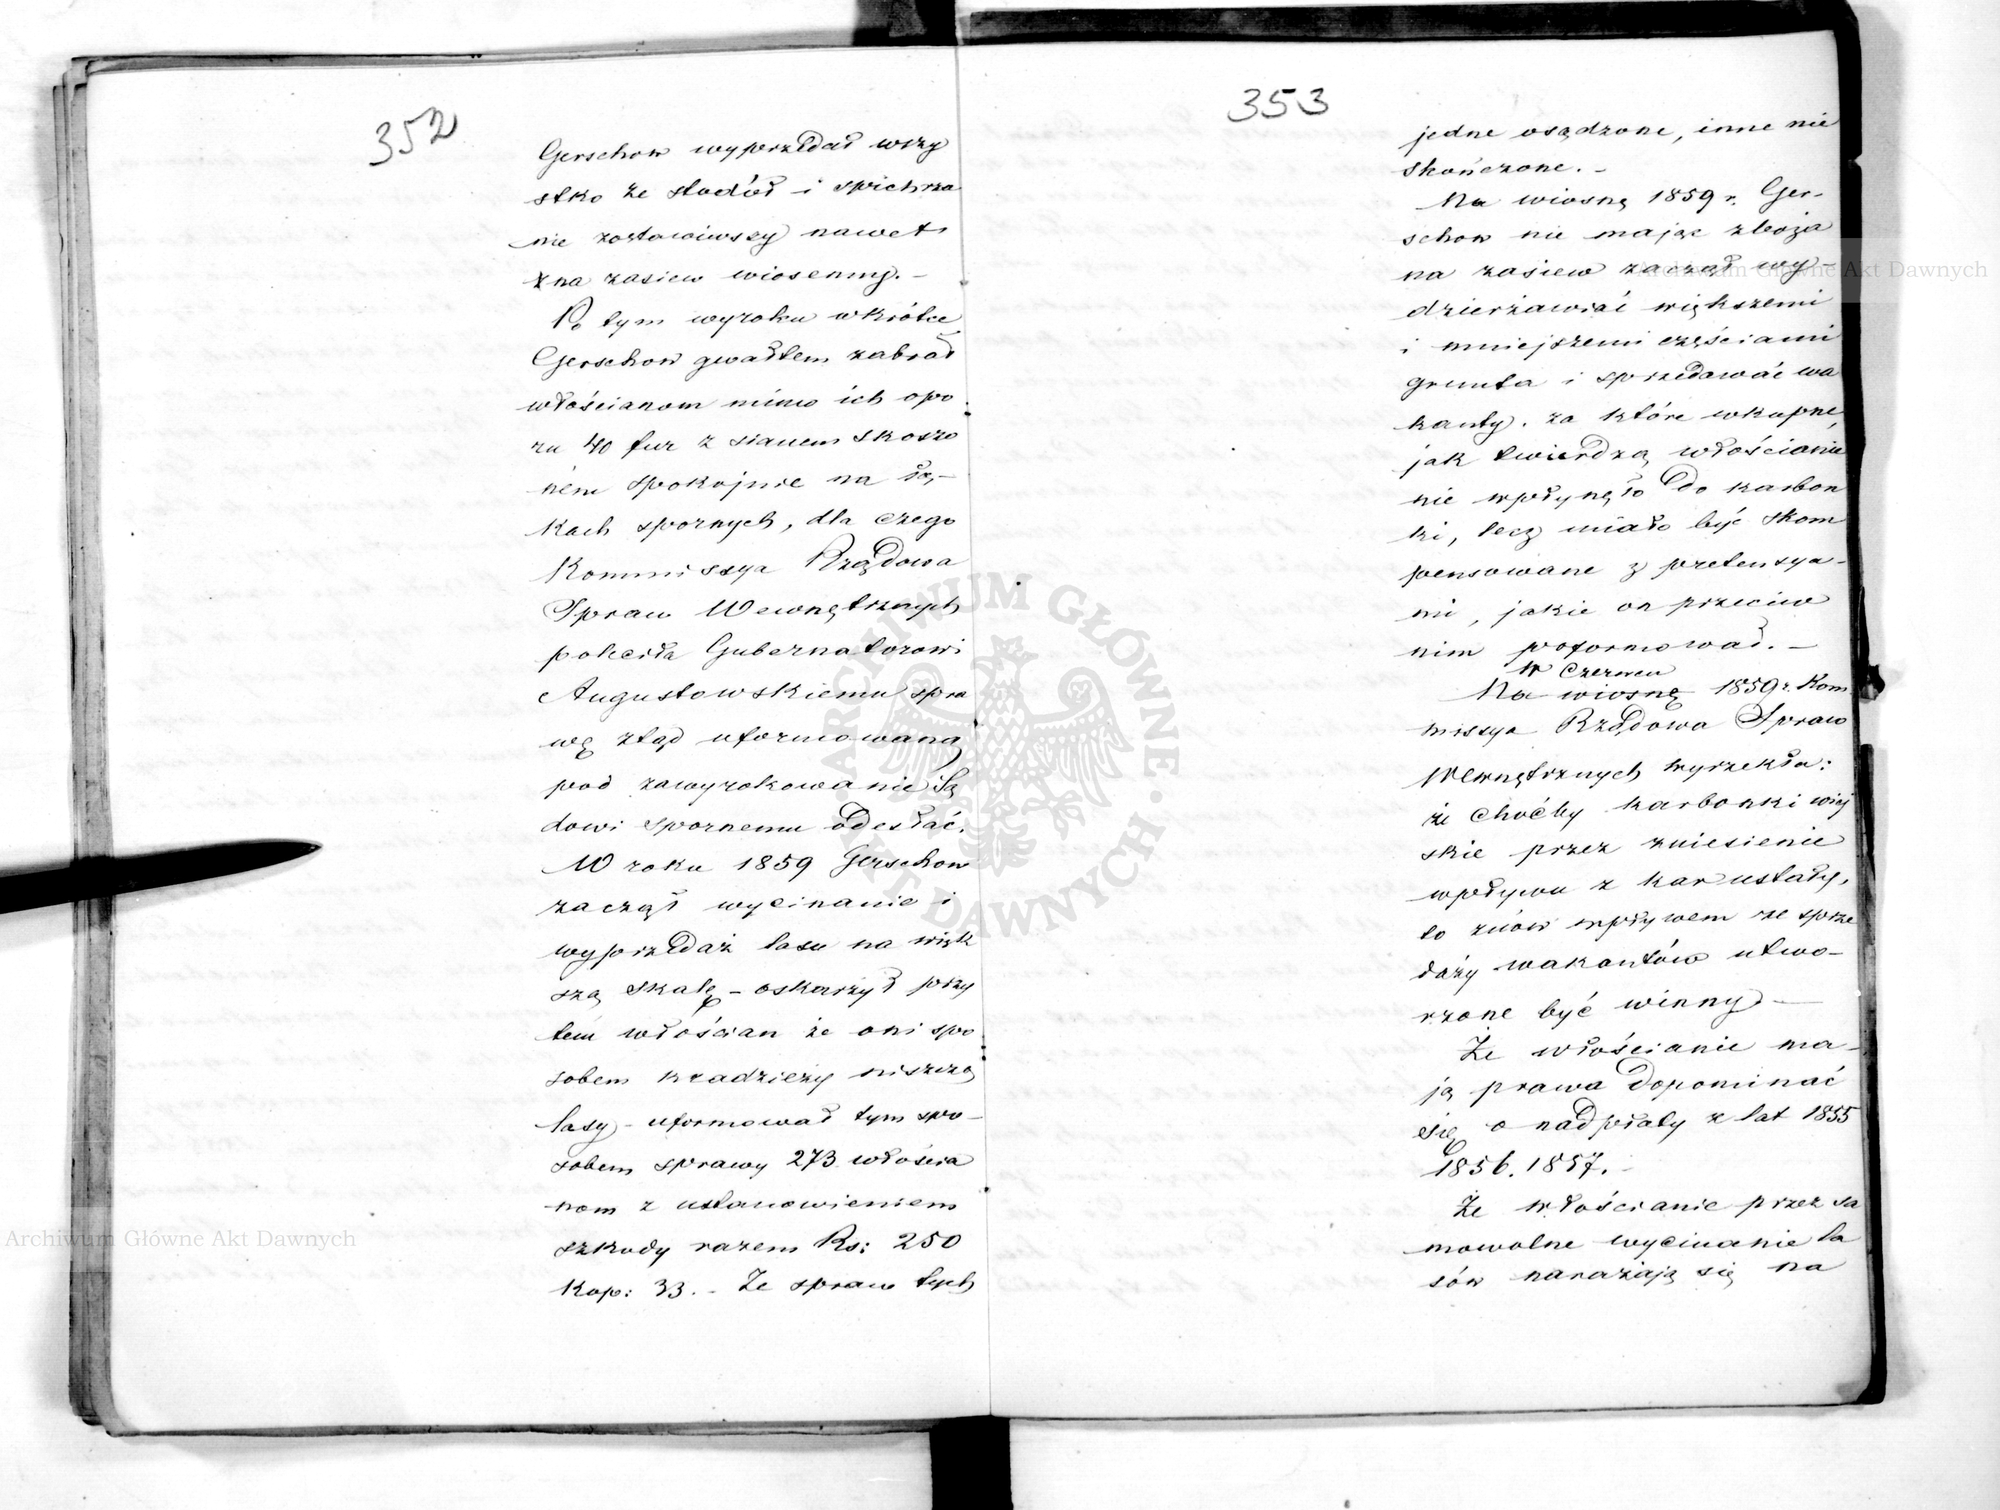 352
Gerschow wyprzedał wszy
stko ze stodół i spichrza
nie zostawiwszy nawet
na zasiew wiosenny. –
Po tym wyroku wkrótce
Gerschow gwałtem zabrał
włościanom mimo ich opo
ru 40 fur z sianem skoszo
ném spokojnie na łą–
kach spornych, dla czego
Kommissya Rządowa
Spraw Wewnętrznych
poleciła Gubernatorowi
Augustowskiemu spra
wę ztąd uformowaną
pod zawyrokowanie Są
dowi spornemu odesłać.
W roku 1859 Gerschow
zaczął wycinanie i
wyprzedaż lasu na więk
szą skalę – oskarżył przy
tém włościan że oni spo
sobem kradzieży niszczą
lasy – uformował tym spo–
sobem sprawy 273 włościa
nom z ustanowieniem
szkody razem Rs: 250
Kop: 33. – Ze spraw tych
353
jedne osądzone, inne nie
skończone. –
Na wiosnę 1859 r. Ger–
schow nie mając zboża
na zasiew zaczął wy–
dzierżawiać większemi
i mniejszemi częściami
grunta i sprzedawać wa
kanty. za które wkupne,
jak twierdzą włościanie
nie wpłynęło do karbon
ki, lecz miało być skom
pensowane z pretensya–
mi, jakie on przeciw
nim poformował. –
W Czerwcu
Na wiosnę 1859 r. Kom
missya Rządowa Spraw
Wewnętrznych wyrzekła:
że choćby karbonki wiej
skie przez zniesienie
wpływu z kar ustały,
to znów wpływem ze sprze
daży wakantów utwo–
rzone być winny –
Że włościanie ma–
ją prawa dopominać
się o nadpłaty z lat 1855
1856. 1857. –
Że włościanie przez sa
mowolne wycinanie la
sów narażają się na
Archiwum Główne Akt Dawnych
Archiwum Główne Akt Dawnych
· ARCHIWUM GŁÓWNE · AKT DAWNYCH ·